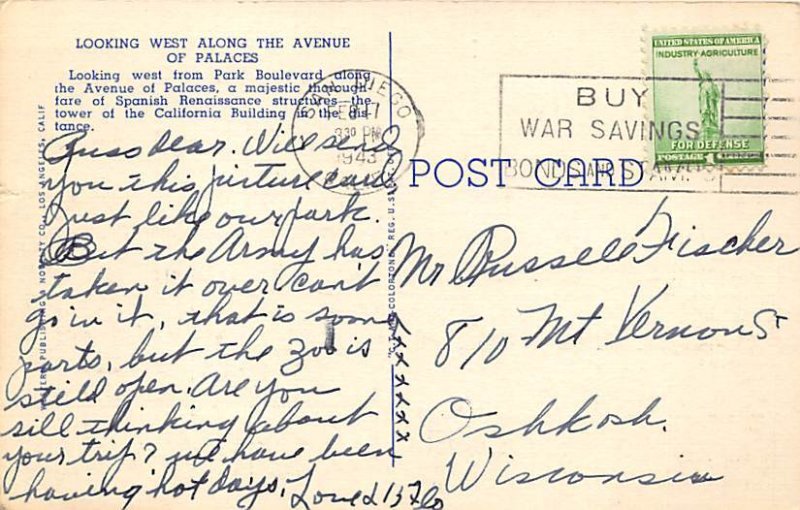 LOOKING WEST ALONG THE AVENUE
OF PALACES
Looking west from Park Boulevard along
the Avenue of Palaces, a majestic thorough-
fare of Spanish Renaissance structures, the
tower of the California Building in the dis-
tance.
Russ dear. Will send
you this picture card
Just like our park.
But the Army has
taken it over can't
go in it, that is some
parts, but the Zoo is
still open. Are you
sill thinking about
your trip? we have been
having hot days,
Love
xxxxxx
POST CARD
SAN DIEGO
FEB 17
330 PM
1943
BUY
WAR SAVINGS
BONDS AND STAMPS
UNITED STATES OF AMERICA
INDUSTRY AGRICULTURE
FOR DEFENSE
POSTAGE 1
Mr Russell Fischer
810 Mt Vernon St
Oshkosh.
Wisconsin